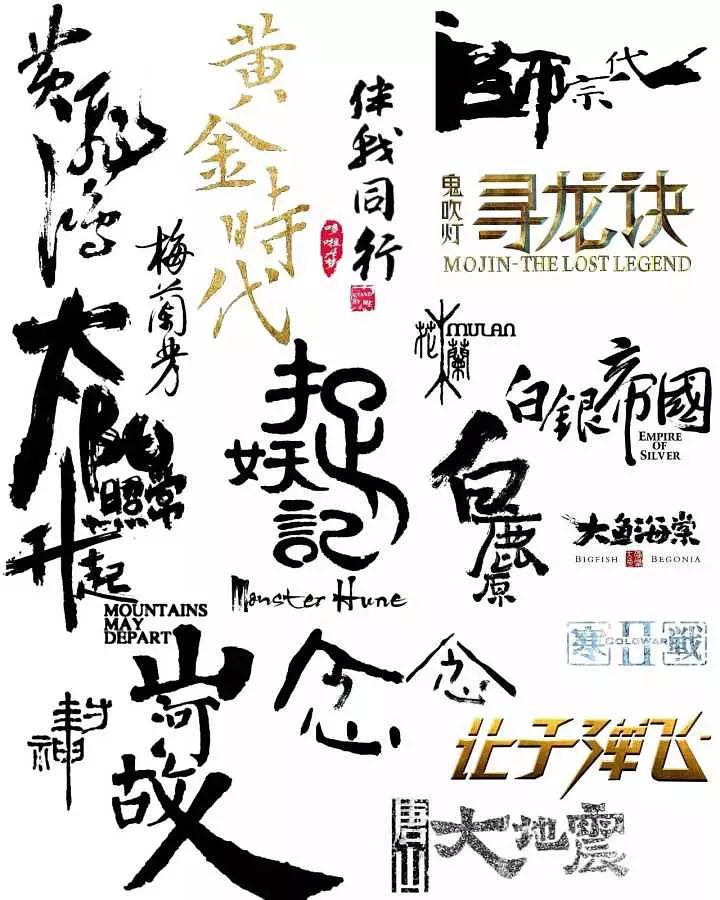 黄飛鴻
黄金時代
伴我同行
STAND BY ME
一代宗師
鬼吹灯
寻龙诀
MOJIN-THE LOST LEGEND
梅蘭芳
花木蘭
MULAN
白銀帝國
EMPIRE
OF
SILVER
太阳照常升起
捉妖記
Monster Hune
白鹿原
大鱼海棠
BIGFISH BEGONIA
寒II戦
COLDWAR
MOUNTAINS
MAY
DEPART
山河故人
念念
封神
让子弹飞
唐山
大地震